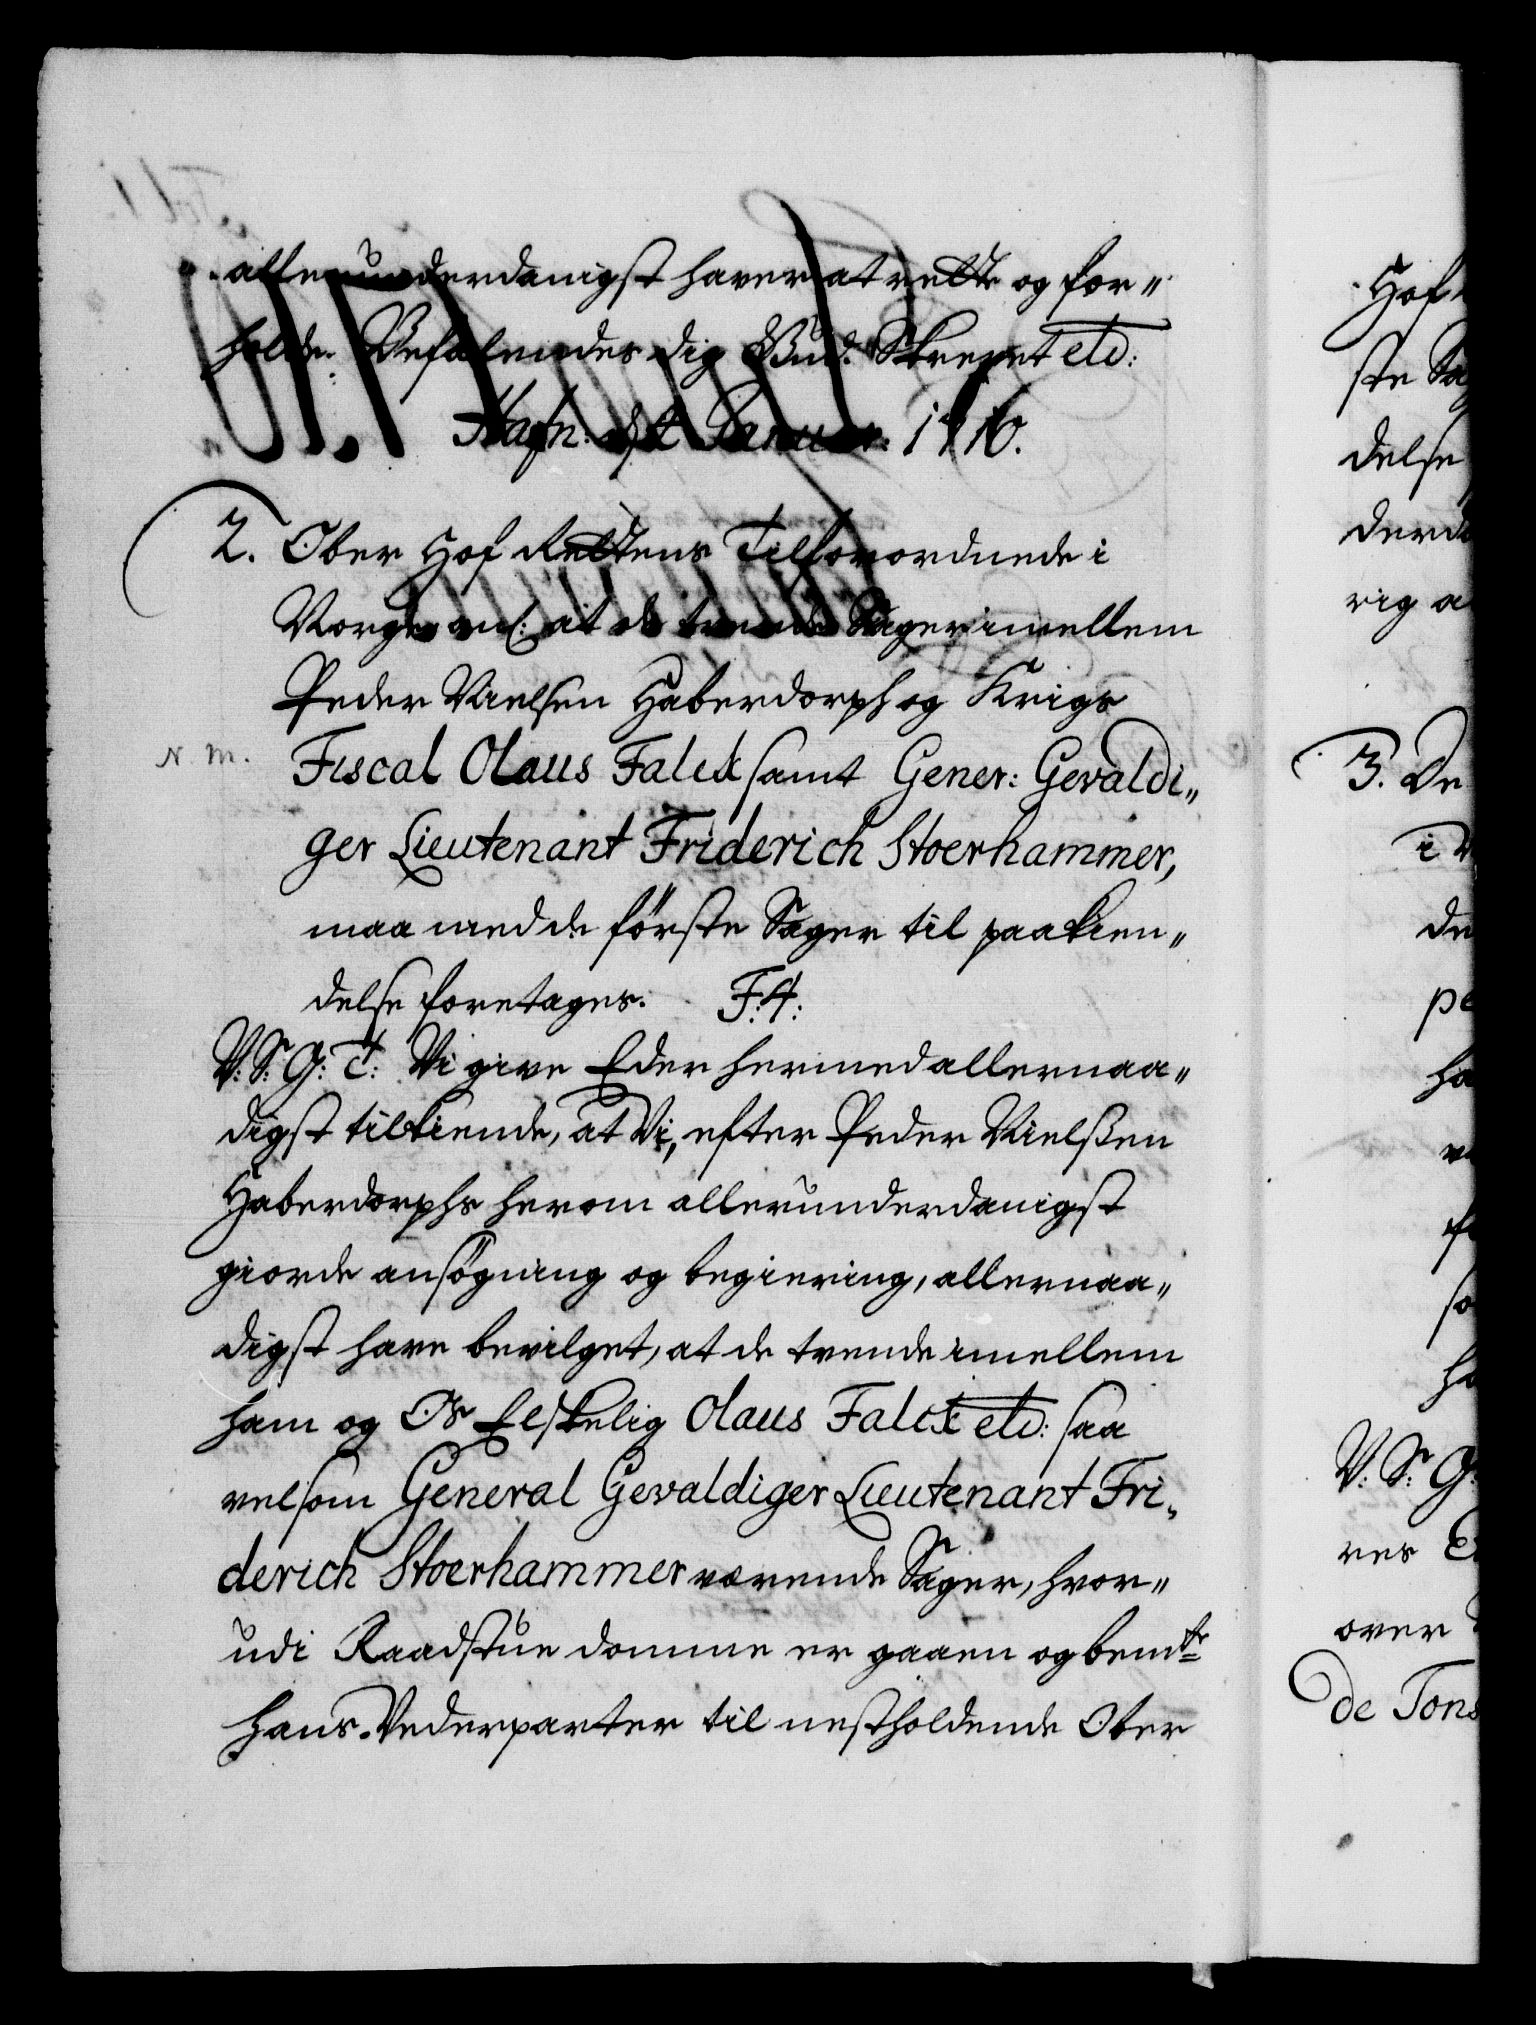 allerunderdanigst haver at rette og for„
holde. Befalendes dig Gud. Skrevet etc:
Hafn: d Januar: 1716.
2. Ober Hof Rettens Tilforordnede i
Norge anl: at de trende Sager imellem
Peder Nielsen Haberdorph og Krigs
N. M.
Fiscal Olaus Falck samt Gener: Gevaldi„
ger Lieutenant Friderich Stoerhammer,
maa med de første Sager til paakien„
delse foretages. F:4:
V: S: G: T: Vi give Eder hermed allernaa„
digst tilkiende, at Vi, efter Peder Nielßen
Haberdorphs herom allerunderdanigst
giorde ansøgning og begiering, allernaa„
digst have bevilget, at de trende imellem
ham og Os Elskelig Olaus Falck etc: saa
velsom General Gevaldiger Lieutenant Fri„
derich Stoerhammer værende Sager, hvor„
udi Raadstue domme er gaaen og bemte
hans Vederparter til nestholdende Ober
Hof
ste
delse
rig
3. De
i
de
pe
ha
V: S: G:
res
over
de Tons